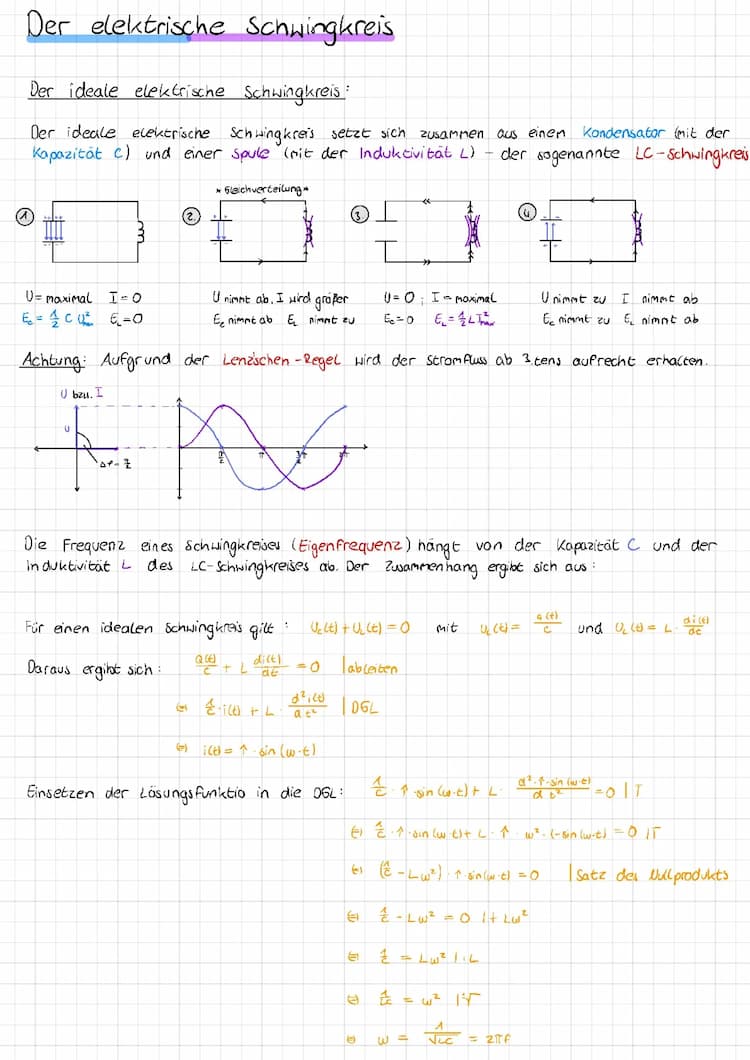 Der elektrische Schwingkreis
Der ideale elektrische Schwingkreis:
Der ideale elektrische Schwingkreis setzt sich zusammen aus einen Kondensator (mit der
Kapazität C) und einer Spule (mit der Induktivität L) – der sogenannte LC-Schwingkreis
* Gleichverteilung *
1 2. 3. 4.
U = maximal I = 0
E_C = 1/2 C U²_max E_L = 0
U nimmt ab, I wird größer
E_C nimmt ab E_L nimmt zu
U = 0 ; I = maximal
E_C = 0 E_L = 1/2 L I²_max
U nimmt zu I nimmt ab
E_C nimmt zu E_L nimmt ab
Achtung: Aufgrund der Lenz'schen-Regel wird der Stromfluss ab 3.tens aufrecht erhalten.
U bzw. I
U
π/2 π 3π/2 2π
Die Frequenz eines Schwingkreises (Eigenfrequenz) hängt von der Kapazität C und der
Induktivität L des LC-Schwingkreises ab. Der Zusammenhang ergibt sich aus:
Für einen idealen Schwingkreis gilt: U_C(t) + U_L(t) = 0 mit U_C(t) = Q(t)/C und U_L(t) = L · di(t)/dt
Daraus ergibt sich: Q(t)/C + L di(t)/dt = 0 | ableiten
(=) 1/C · i(t) + L · d²i(t)/dt² | DGL
(=) i(t) = ↑ · sin(ω·t)
Einsetzen der Lösungsfunktio in die DGL: 1/C · ↑ · sin(ω·t) + L · d²·↑·sin(ω·t)/dt² = 0 | T
(=) 1/C · ↑ · sin(ω·t) + L · ↑ · ω² · (-sin(ω·t) = 0 | T
(=) (1/C - Lω²) · ↑ · sin(ω·t) = 0 | Satz des Nullprodukts
(=) 1/C - Lω² = 0 | + Lω²
(=) 1/C = Lω² | : L
(=) 1/LC = ω² | √
(=) ω = 1/√LC = 2πf